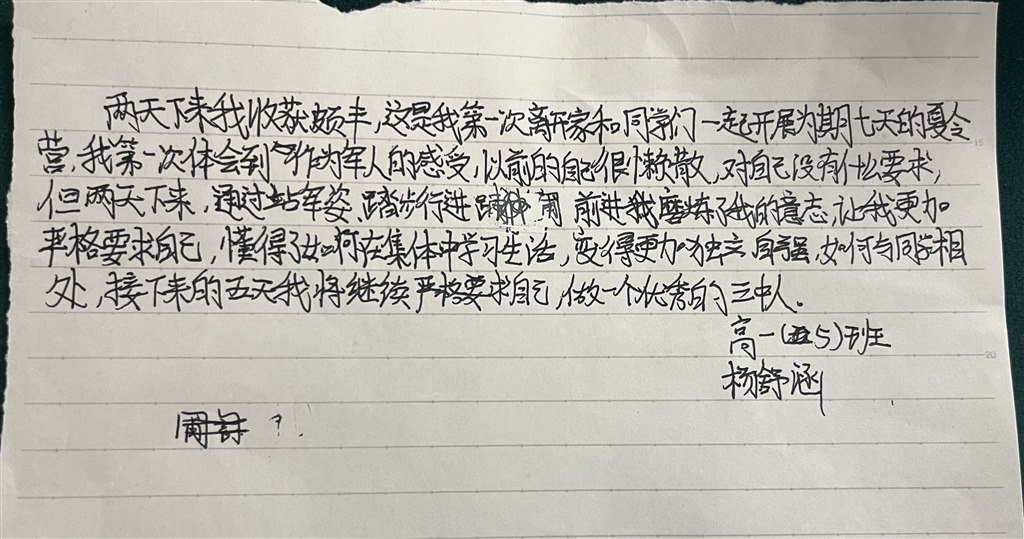 两天下来我收获颇丰,这是我第一次离开家和同学们一起开展为期七天的夏令
营,我第一次体会到作为军人的感受,以前的自己很懒散,对自己没有什么要求,
但两天下来,通过站军姿、踏步行进 前进磨炼了我的意志,让我更加
严格要求自己,懂得了如何在集体中学习生活,变得更加独立自强,如何与同学相
处,接下来的五天我将继续严格要求自己,做一个优秀的三中人。
高一(5)班
杨舒涵
15
20